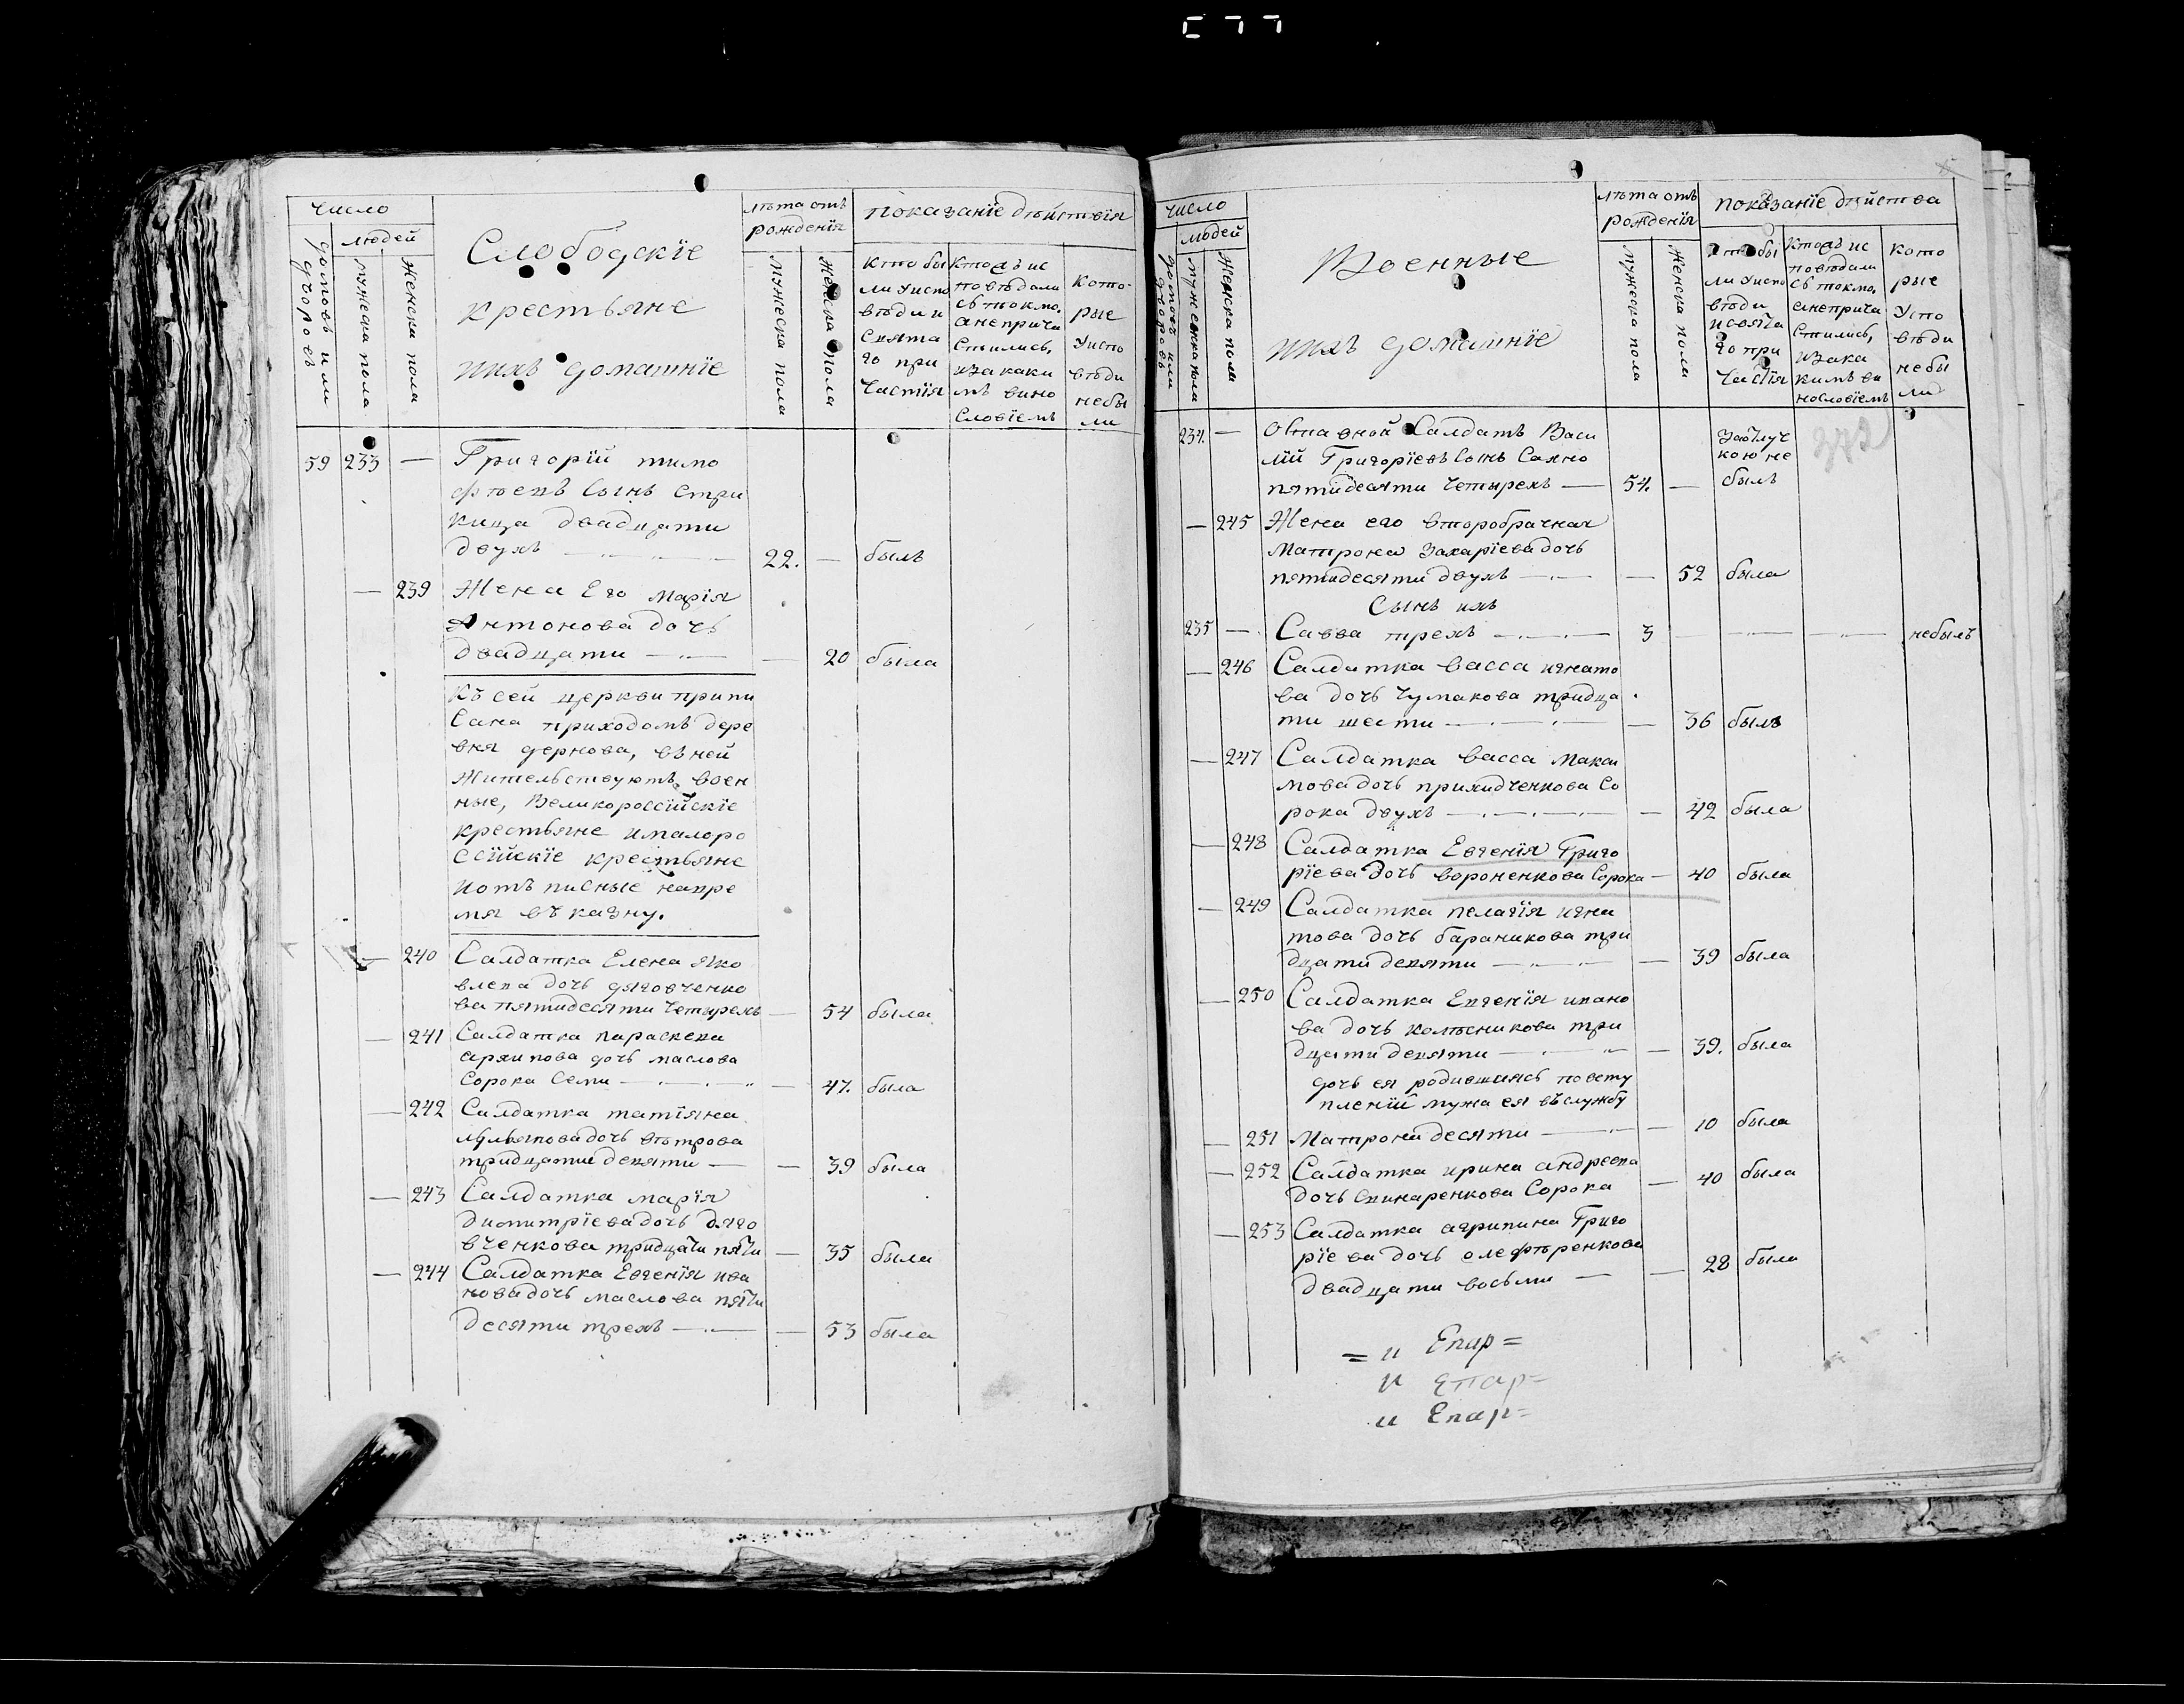 число
людей
домовъ или
дворовъ
мужеска пола
женска пола
Слободскіе
крестьяне
иихъ домашніе
лѣта отъ
рожденія
мужеска пола
женска пола
показаніе дѣйствія
кто бы
ли уиспо
вѣди и
свята
го при
частія
кто жъ ис
повѣдали
сь токмо,
анеприча
стились,
иза каки
мъ вино
словіемъ
кото-
рые
уиспо
вѣди
небы
ли
59 233 — Григорій тимо
ѳѣевъ сынъ стри
кица двадцати
двухъ — 22. — былъ
— 239 Жена Его марія
Антонова дочь
двадцати — — 20 была
къ сей церкви припи
сана приходомъ дере
вня дернова, въ ней
жительствуютъ воен
ные, Великороссійскіе
крестьяне ималоро
ссійскіе крестьяне
иотписные навре
мя въ казну.
— 240 Салдатка Елена яко
влева дочь дяговченко
ва пятидесяти четырехъ — 54 была
— 241 Салдатка параскева
архипова дочь маслова
сорока семи — — 47. была
— 242 Салдатка татіяна
лукьянова дочь вѣтрова
тридцати девяти — — 39 была
— 243 Салдатка марія
димитріева дочь дяго
вченкова тридцати пяти — 35 была
— 244 Салдатка Евгенія ива
нова дочь маслова пяти
десяти трехъ — — 53 была
число
людей
домовъ или
дворовъ
мужеска пола
женска пола
Военные
иихъ домашніе
лѣта отъ
рожденія
мужеска пола
женска пола
показаніе дѣйства
кто бы
ли уиспо
вѣди
исвята
го при
частія
кто жъ ис
повѣдали
сь токмо,
анеприча
стились,
иза ка
кимъ ви
нословіемъ
кото
рые
успо
вѣди
небы
ли
372
234. — Отставной Салдатъ Васи
лій Григоріевъ сынъ Сахно
пятидесяти четырехъ — 54. —
заотлуч
кою не
былъ
— 245 Жена его второбрачная
Матрона Захаріева дочь
пятидесяти двухъ — — 52 была
Сынъ ихъ
235 — Савва трехъ — 3 — — небылъ
— 246 Салдатка васса игнато
ва дочь чумакова тридца
ти шести — — 36 была
— 247 Салдатка васса макси
мова дочь прихидченкова со
рока двухъ — — 42 была
— 248 Салдатка Евгенія Григо
ріева дочь вороненкова сорока — 40 была
— 249 Салдатка пелагія игна
това дочь бараникова три
дцати девяти — — 39 была
— 250 Салдатка Евгенія ивано
ва дочь колѣсникова три
дцати девяти — — 39. была
дочь ея родившаясь повсту
пленіи мужа ея въ службу
— 251 Матрона десяти — — 10 была
— 252 Салдатка ирина андреева
дочь свинаренкова сорока — 40 была
— 253 Салдатка агрипина Григо
ріева дочь олефѣренкова
двадцати восьми — — 28 была
= и Епар=
и Епар=
и Епар=